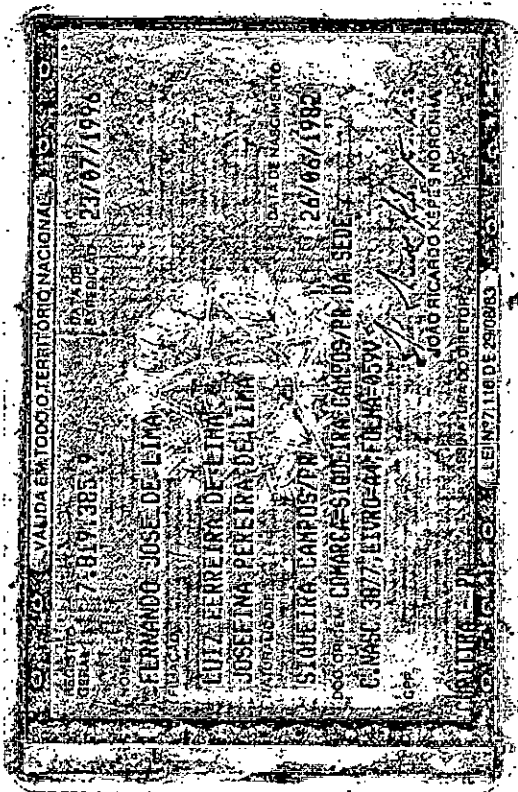 VÁLIDA EM TODO O TERRITÓRIO NACIONAL
REGISTRO GERAL 7.819.385-9 DATA DE EXPEDIÇÃO 23/07/1996
NOME
FERNANDO JOSE DE LIMA
FILIAÇÃO
LUIZ FERREIRA DE LIMA
JOSEFINA PEREIRA DE LIMA
NATURALIDADE DATA DE NASCIMENTO
SIQUEIRA CAMPOS/PR 26/06/1982
DOC. ORIGEM COMARCA=SIQUEIRA CAMPOS/PR, DA SEDE
C.NASC 3877, LIVRO=A4, FOLHA=059V
CPF
CURITIBA - PR
JOÃO RICARDO KÉPES NORONHA
ASSINATURA DO DIRETOR
LEI Nº 7.116 DE 29/08/83